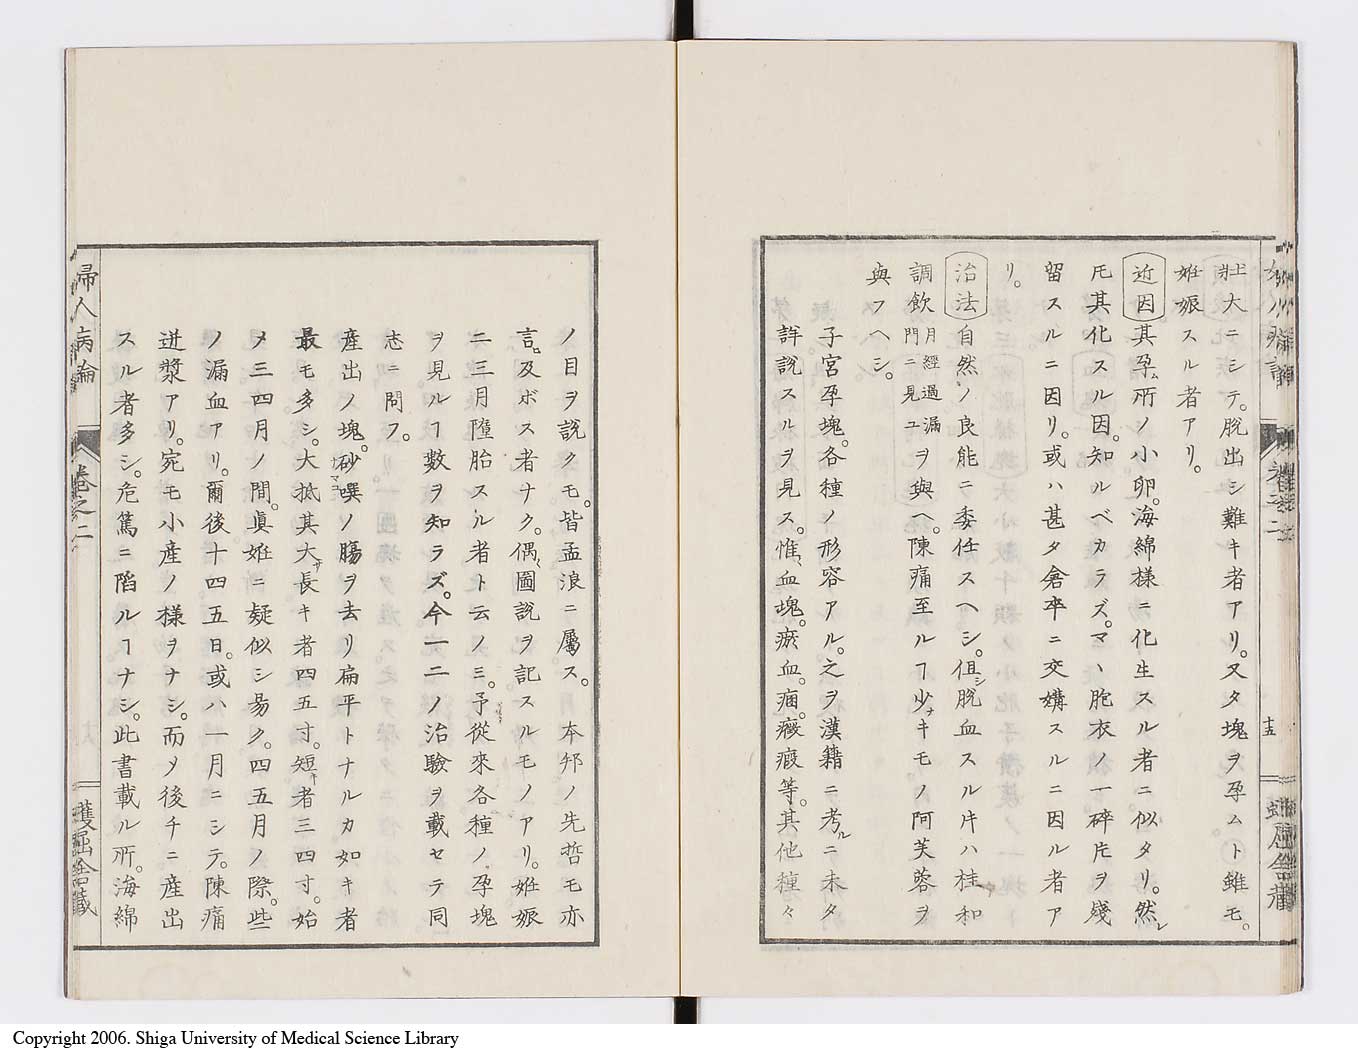 壯大ニシテ。脱出シ難キ者アリ。又タ塊ヲ孕ムト雖モ。
姙娠スル者アリ。
近因 其孕ム所ノ小卵。海綿様ニ化生スル者ニ似タリ。然レ
𪜈其化スル因。知ルベカラズ。マヽ胞衣ノ一碎片ヲ殘
留スルニ因リ。或ハ甚タ倉卒ニ交媾スルニ因ル者ア
リ。
治法 自然ノ良能ニ委任スヘシ。但シ脱血スル片ハ桂和
調飲 月經過漏門ニ見ユ ヲ與ヘ。陳痛至ルヿ少ナキモノ阿芙蓉ヲ
與フヘシ。
子宮孕塊。各種ノ形容アル。之ヲ漢籍ニ考ルニ未タ
詳說スルヲ見ス。惟、血塊。瘀血。痼。癥瘕等。其他種々
ノ目ヲ說クモ。皆孟浪ニ屬ス。本邦ノ先哲モ亦
言。及ボス者ナク。偶、圖說ヲ記スルモノアリ。姙娠
二三月墮胎スル者ト云ノミ。予從來各種ノ孕塊
ヲ見ルヿ數ヲ知ラズ。今一二ノ治驗ヲ載セテ同
志ニ問フ。
產出ノ塊。砂噀ノ腸ヲ去リ扁平トナルカ如キ者
最モ多シ。大抵其大サ長キ者四五寸。短キ者三四寸。始
メ三四月ノ間。眞姙ニ疑似シ易ク。四五月ノ際。些
ノ漏血アリ。爾後十四五日。或ハ一月ニシテ。陳痛
迸漿アリ。宛モ小産ノ様ヲナシ。而メ後チニ産出
スル者多シ。危篤ニ陷ルヿナシ。此書載ル所。海綿
婦人病論 卷之二
十五